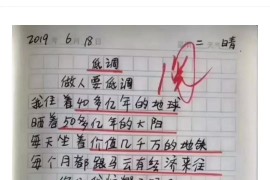 2019年6月18日 二 晴
低调
做人要低调
我住着40多亿年的地球
晒着50多亿年的太阳
每天坐着价值几千万的地铁
每个月都跟马云有经济来往